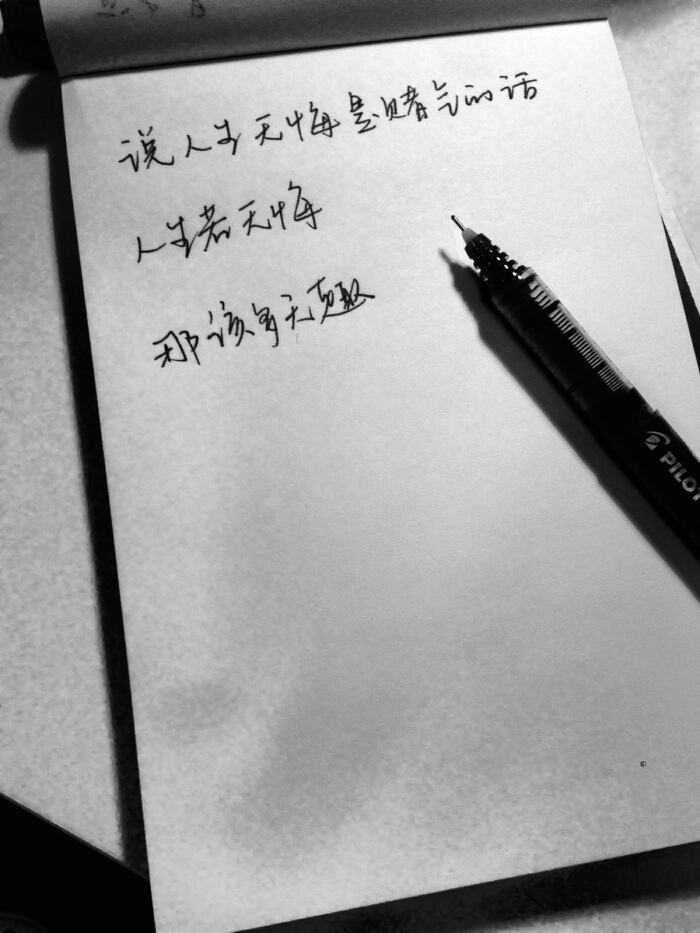 说人生无悔是赌气的话
人生若无悔
那该多无趣
PILOT